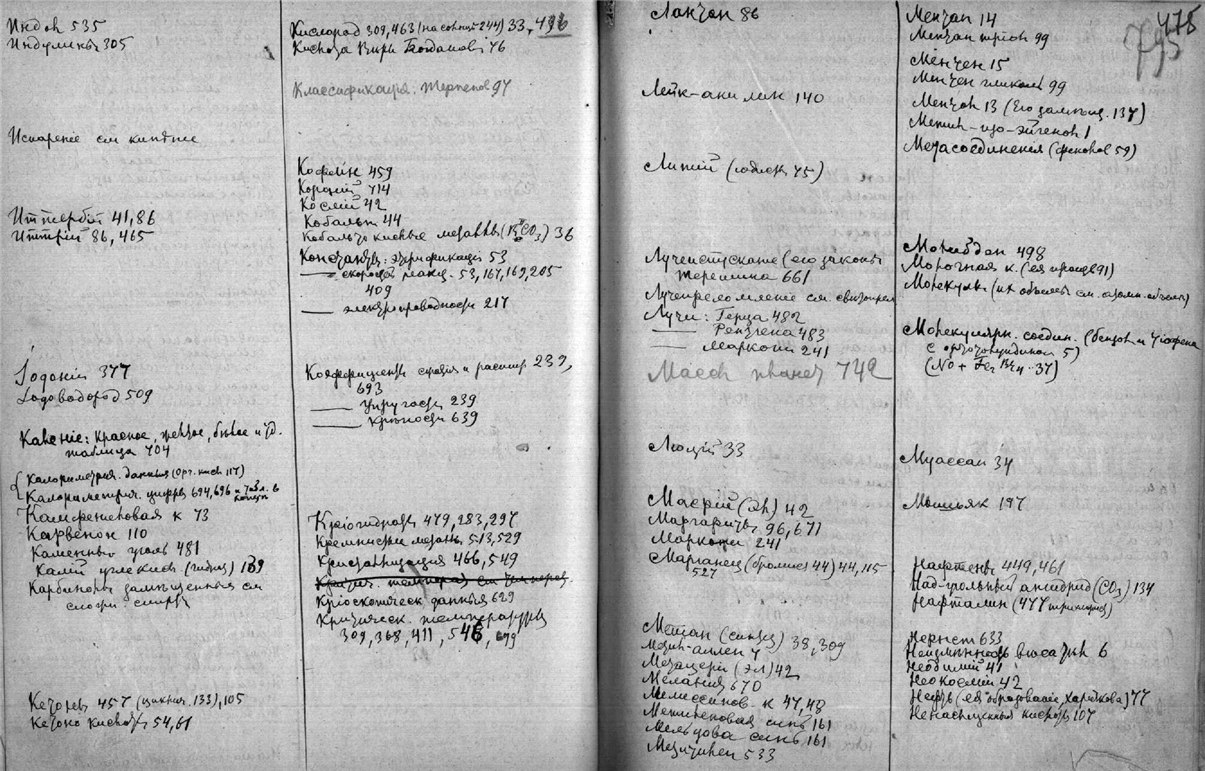 Индол 535
Индулины 305
Испаренiе см кипѣнiе
Иттербiй 41,86
Иттрiй 86, 465
Iодонiй 377
Iодоводород 509
Каленiе: Красное, желтое, бѣлое и тд.
таблица 704
Калориметрич. данныя (орг. кисл 117)
Калориметрич. цифры 694,696
Камфеленовая к 73
Карвенон 110
Каменный уголь 481
Калiй углекисл (гидрат) 139
Карбинолы замѣщенныя см
Кетоны 457 (циклич. 133), 105
Кетоно кислоты 54,61
Кислород 309,463 (на солнцѣ 244) 33, 496
Кислота Киры Богданова 76
Классификацiя Терпенов 97
Кофеин 459
Коронiй 714
Космiй 42
Кобальт 44
Кобальто кислые металлы 36
Константы: этерификацiи 53
— скорость реакц. 53, 167, 169, 205
409
— электропроводности 217
Коэффицiенты сжатiя и расшир 239,
693
— упругости 239
— крѣпости 639
Крiогидраты 479, 283, 297
Кремнистые металлы 513,529
Кристаллизацiя 466, 549
Критич. температ см температ.
Крiоскопическ данныя 629
Критическ. температуры
309, 368, 411, 546, 699
Лантан 86
Лейк-анилин 140
Литiй (iодист 45)
Лучеиспусканiе (его законы
термина 661
Лучепреломленiе см свѣтопрел
Лучи: Герца 482
— Рентгена 483
— Маркони 241
Масса планет 742
Люцiй 33
Масрiй (Эл) 42
Маргариты 96, 671
Маркони 241
Марганец (бромист 44) 44, 115
527
Метан (синтез) 38, 309
Метил-аллен 4
Метацери (эл) 42
Меланiя 670
Мелиссинов. к 47, 48
Метиленовая синь 161
Мельдова синь 161
Мезитилен 533
Ментан 14
Ментан триол 99
Ментен 15
Ментен гликоль 99
Ментол 13 (Его замѣщ. 137)
Метил-изо-эйгенол 1
Метасоединенiя (фенолов 59)
Молибден 498
Молочная к. (ея произв 91)
Молекулы (их объемы см. атомн. объемы)
Молекулярн. соедин. (бензол и тiофена
с ортотолуидином 5)
Муассан 34
Мышьяк 197
Нафтены 449,461
Над-угольный ангидрид (CO3) 134
Нафталин (477
Нернст 633
Неизмѣнность вѣса тѣл 6
Неодимiй 41
Неокосмiй 42
Нефть (ея образованiе, Харичкова) 77
Ненасыщенныя кислоты 107
475
795